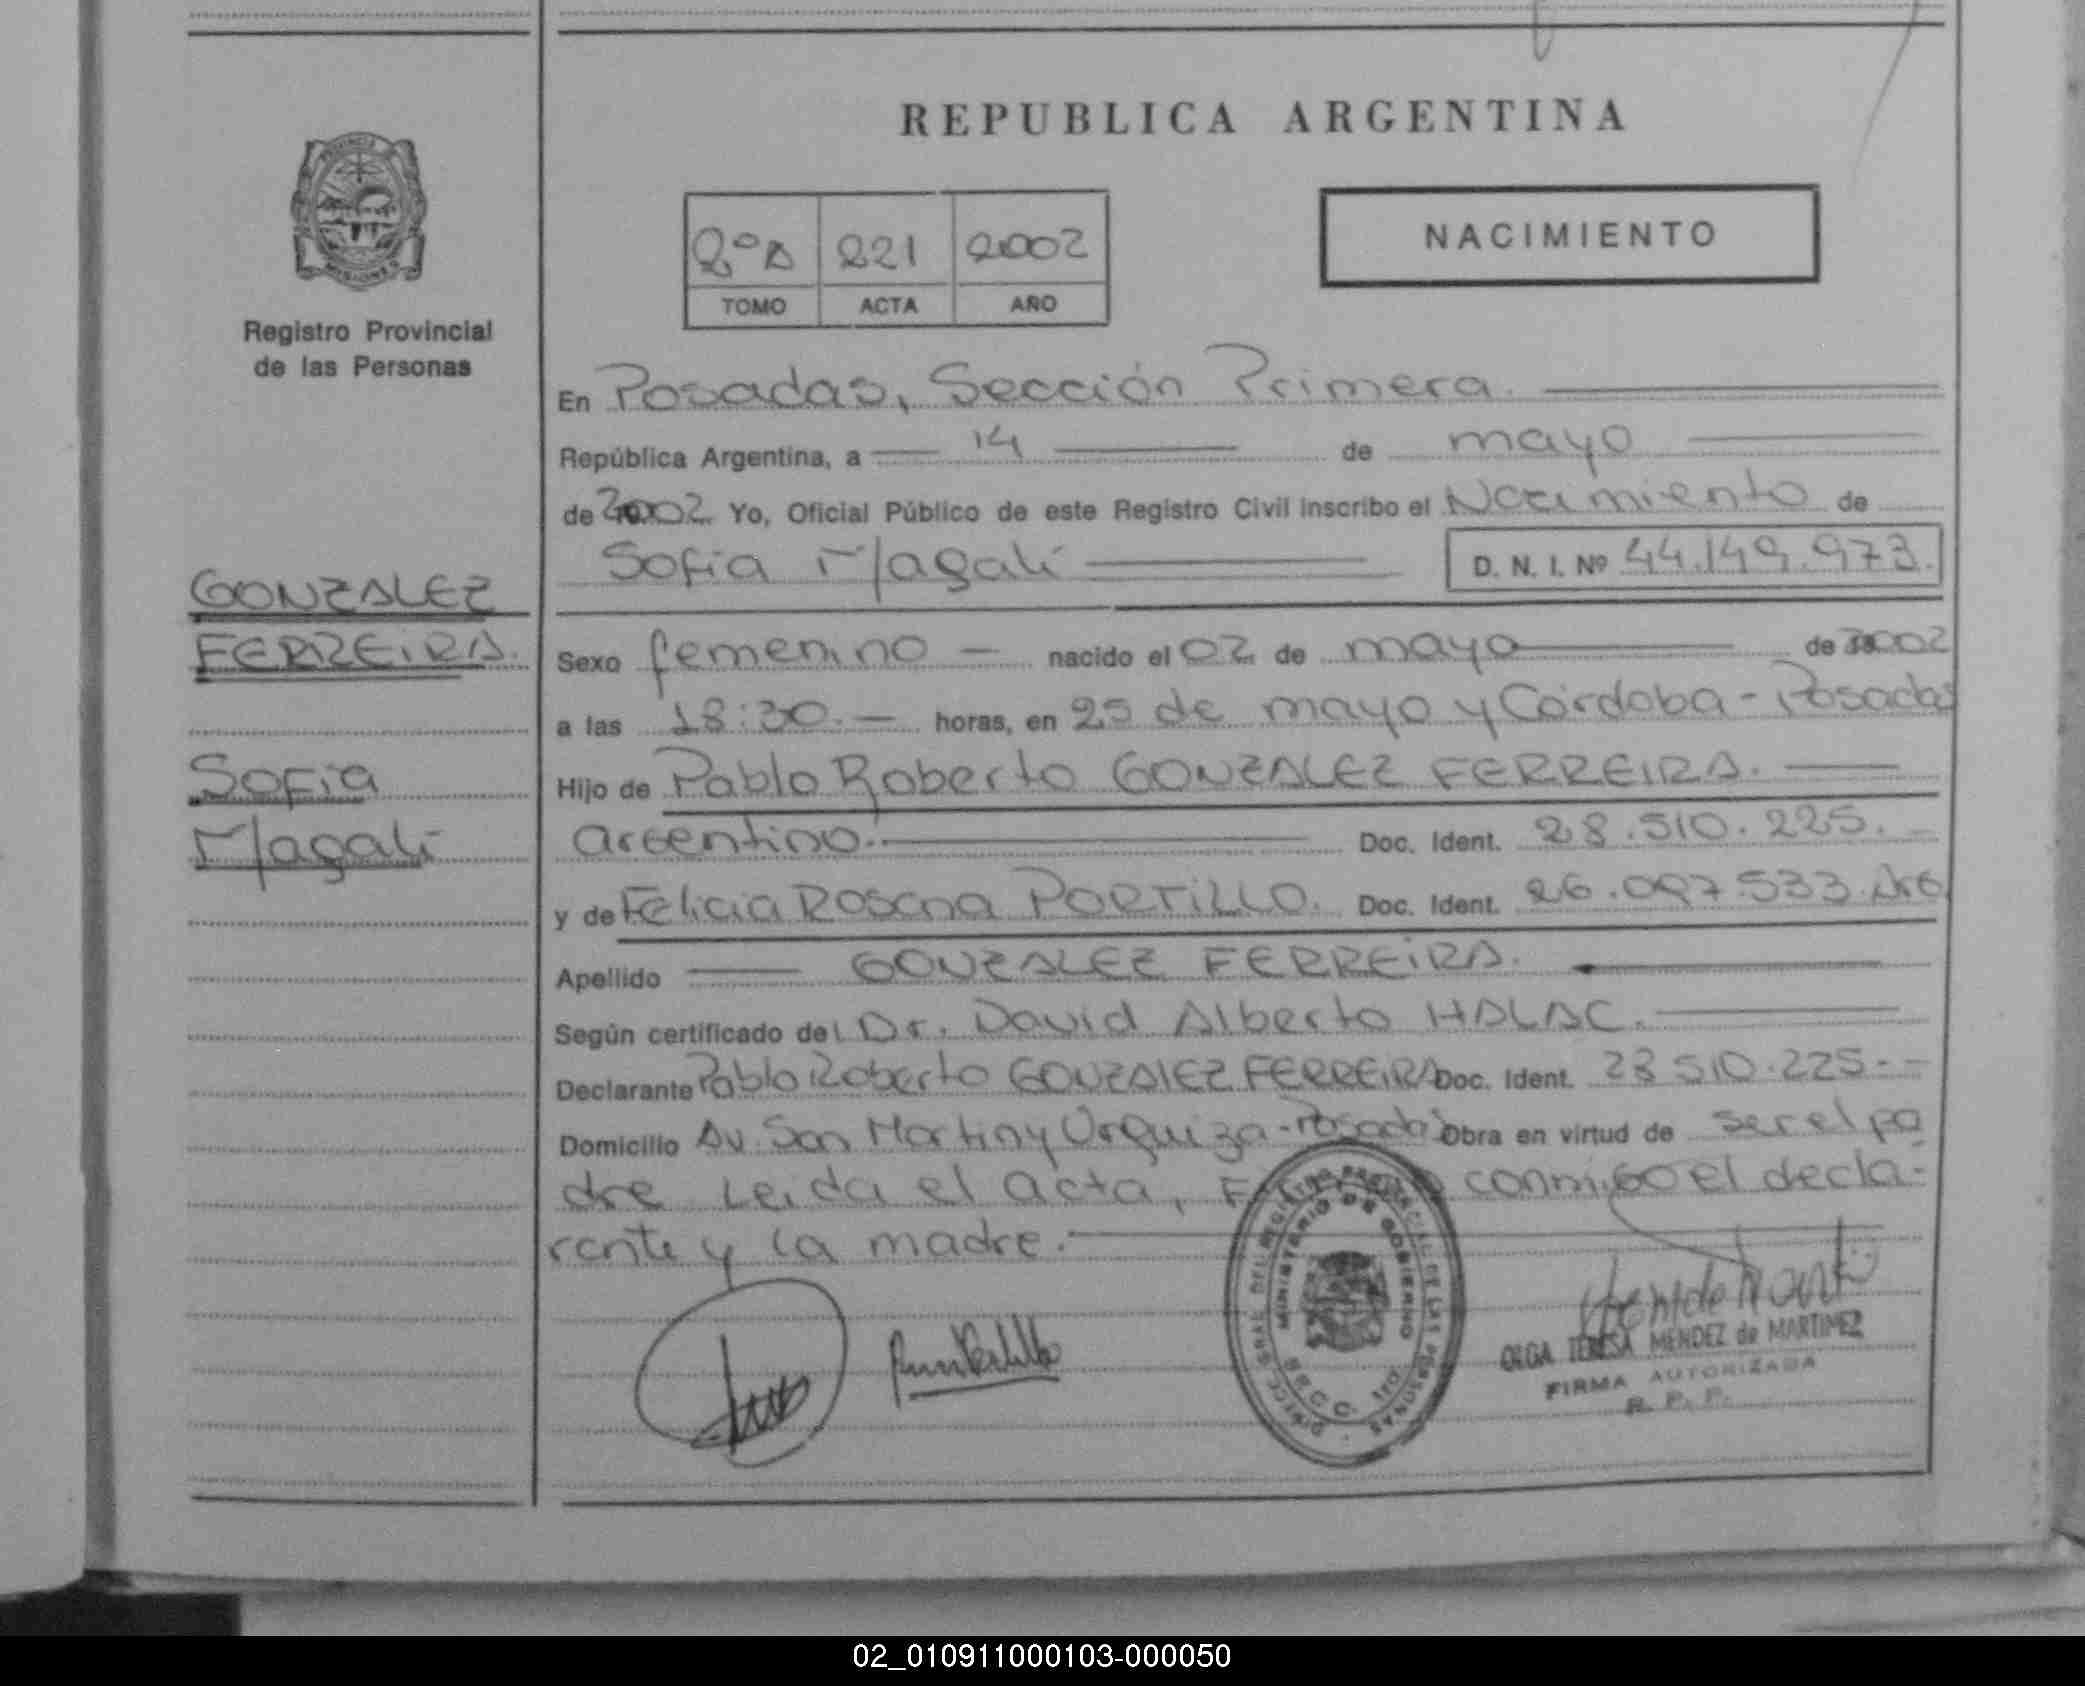 REPUBLICA ARGENTINA
NACIMIENTO
2º A 221 2002
TOMO ACTA AÑO
PROVINCIA
MISIONES
Registro Provincial
de las Personas
En Posadas, Sección Primera.
República Argentina, a 14 de mayo
de 2002 Yo, Oficial Público de este Registro Civil inscribo el Nacimiento de
Sofia Magali D. N. I. Nº 44.149.973.
GONZALEZ
FERREIRA.
Sofia
Magali
Sexo femenino - nacido el 02 de mayo de 2002
a las 18:30.- horas, en 25 de mayo y Córdoba - Posadas
Hijo de Pablo Roberto GONZALEZ FERREIRA.
argentino. Doc. Ident. 28.510.225.-
y de Felicia Rosana PORTILLO. Doc. Ident. 26.097.533. Arg
Apellido GONZALEZ FERREIRA.
Según certificado del Dr. David Alberto HALAC.
Declarante Pablo Roberto GONZALEZ FERREIRA Doc. Ident. 28 510.225.-
Domicilio Av. San Martin y Urquiza - Posadas Obra en virtud de ser el pa
dre Leida el acta, conmigo el decla-
rante y la madre.
MINISTERIO DE GOBIERNO
OLGA TERESA MENDEZ de MARTINEZ
FIRMA AUTORIZADA
R. P. P.
02_010911000103-000050